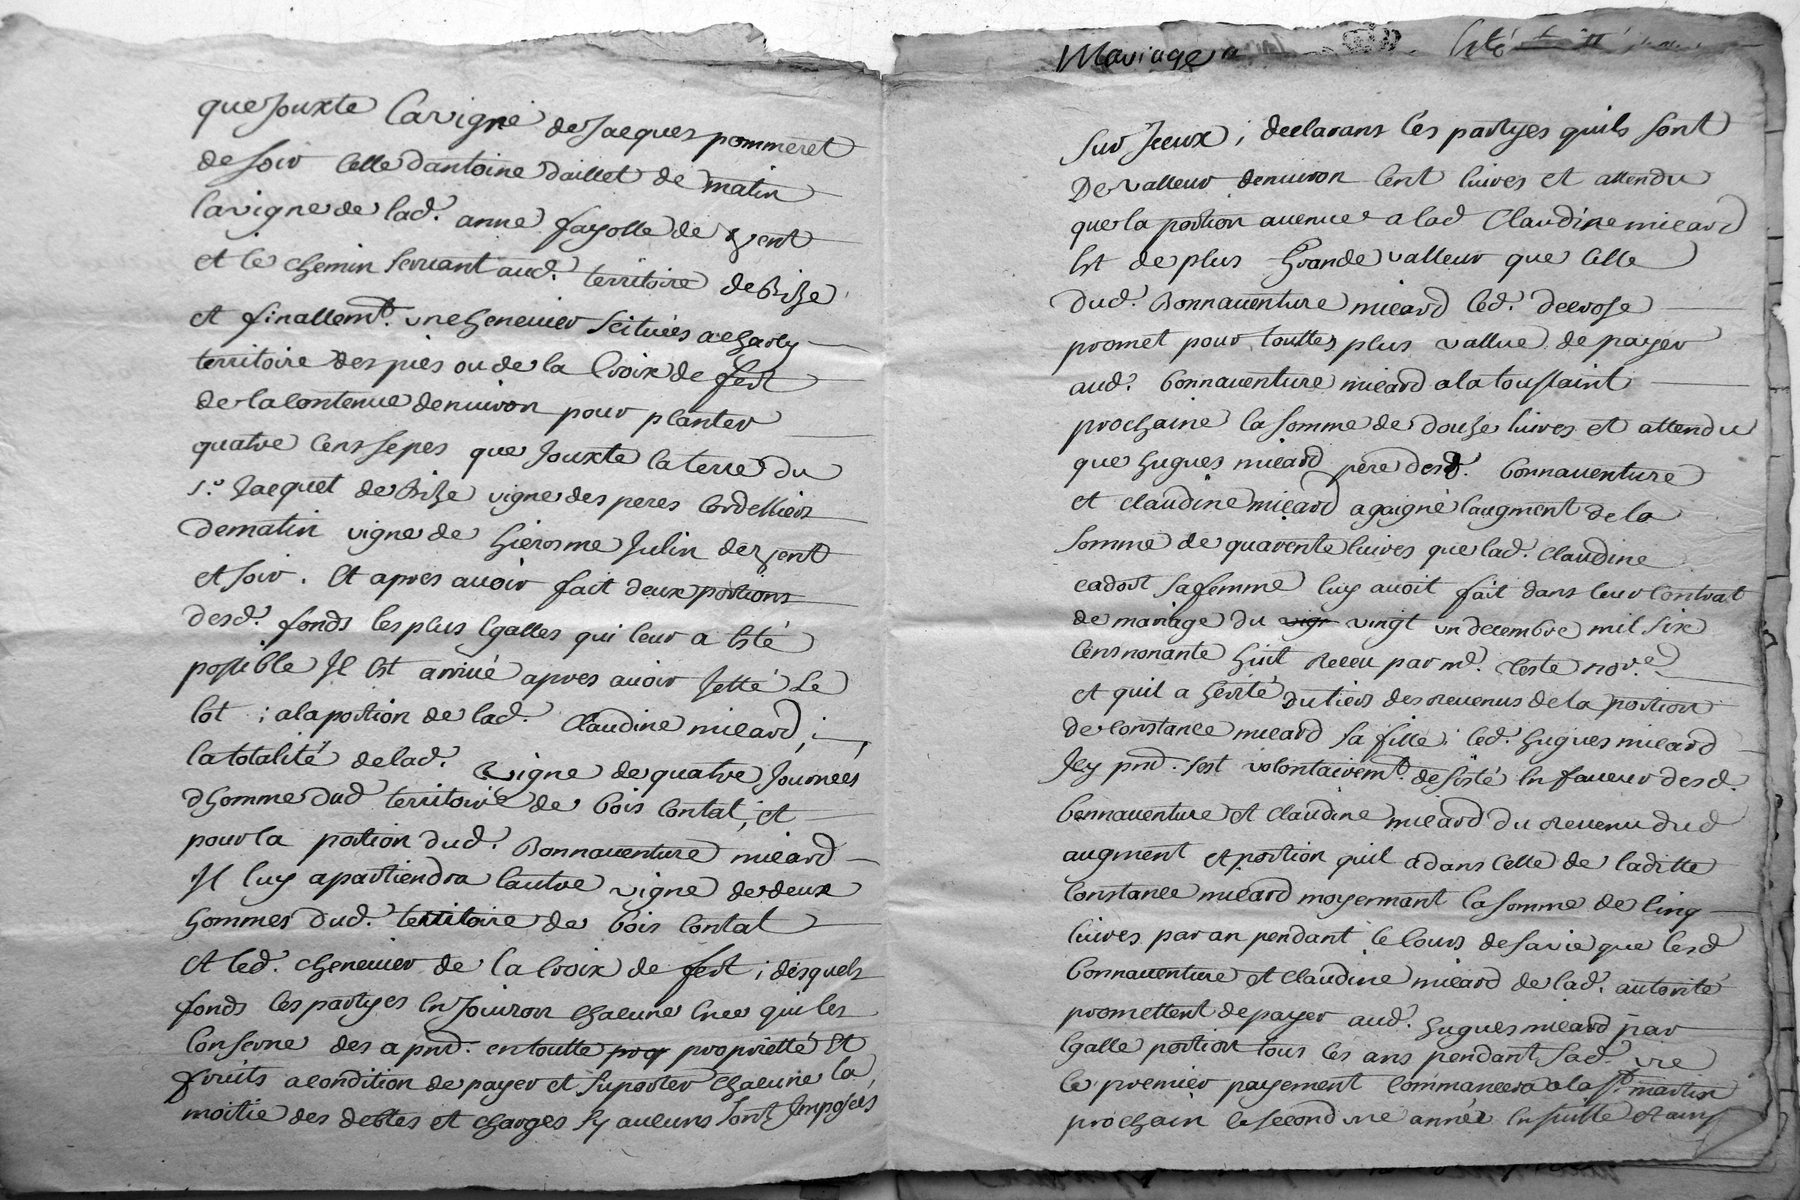 que Jouxte la vigne de Jacques pommeret
de soir celle d'antoine daillet de matin
la vigne de lad. anne fayolle de vent
et le chemin servant aud. territoire de Brize
et finallemt. une chenevier scituées a charly
territoire des pies ou de la Croix de fert
de la contenue d'environ pour planter
quatre cens sepes que Jouxte la terre du
sr. Jacquet de brize vigne des peres Cordelliers
de matin vigne de hierosme Julin de vent
et soir. Et apres avoir fait deux portions
desd. fonds les plus Egalles qui leur a Esté
possible Jl Est arrivé apres avoir Jetté Le
lot ; a la portion de lad. Claudine micard ;
la totalité de lad. vigne de quatre Journées
d'homme dud territoire de bois Contat ; et
pour la portion dud. Bonnaventure micard
Jl luy apartiendra l'autre vigne de deux
hommes dud. territoire de bois Contat
et led. chenevier de la Croix de fert ; desquels
fonds les partyes En Jouiron chacune Enee qui les
Conserne des a pnt. en toutte prop proprietté Et
fruits a condition de payer et suporter chacune la
moitie des debtes et charges sy aucuns sont Jmposées
Mariage
Esté
sur Jceux ; declarans les partyes quils sont
De valleur d'environ Cent livres et attendu
que la portion avenue a lad Claudine micard
Est de plus Grande valleur que Celle
dud. Bonnaventure micard led. decrose
promet pour touttes plus vallue de payer
aud. bonnaventure micard a la toussaint
prochaine la somme de douze livres et attendu
que hugues micard pere desd. bonnaventure
et claudine micard a gaigné l'augment de la
somme de quarente livres que lad. claudine
cadort sa femme luy avoit fait dans leur Contrat
de mariage du vigt vingt un decembre mil six
Cens nonante huit Receu par me. Teste nore.
et quil a hérité du tiers des revenus de la portion
de Constance micard sa fille ; led. hugues micard
Jcy pnt. s'est volontairemt. desisté En faveur desd.
bonnaventure et claudine micard du revenu dud
augment et portion quil a dans Celle de laditte
Constance micard moyennant la somme de Cinq
livres par an pendant le Cours de sa vie que lesd
bonnaventure et claudine micard de lad. autorité
promettent de payer aud. hugues micard par
Egalle portion tous les ans pendant sad. vie
le premier payement commencera a la st. martin
prochain le second une année En suitte et ainsy